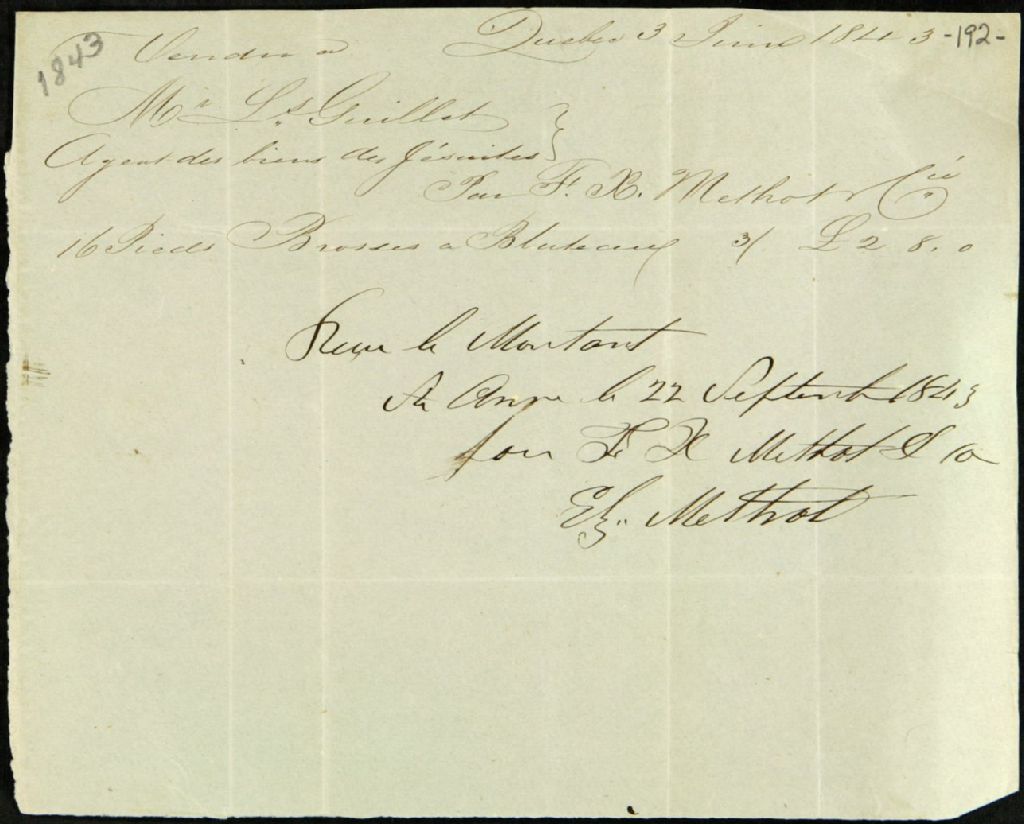 1843
Quebec 3 Juin 1843 -192-
Vendu a
Mr. Ls. Guillet
Agent des biens des Jésuites
Par F. X. Methot & Cie
16 Pieds Brosses a Bluteaux 3/ £ 2 8. 0
Recu le Montant
St Anne le 22 Septembre 1843
pour F X Methot & Co
Ez. Methot